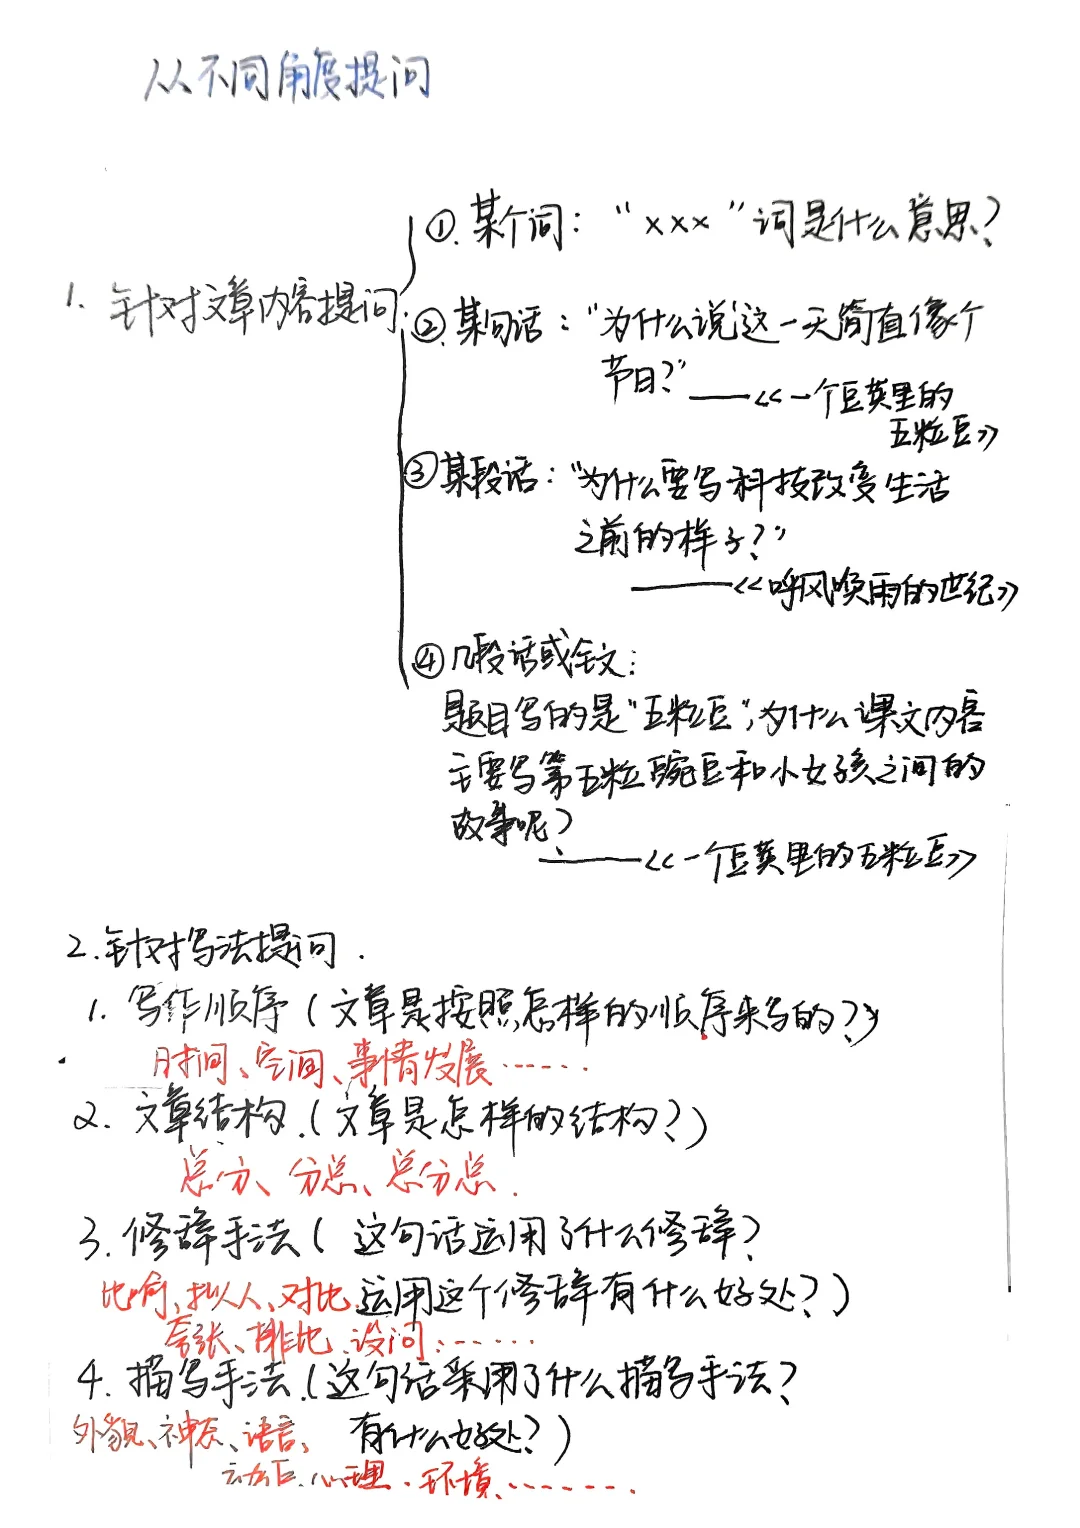 从不同角度提问
①. 某个词：“×××”词是什么意思？
1. 针对文章内容提问.
②某句话：“为什么说‘这一天简直像个
节日？”
——《一个豆荚里的
五粒豆》
③某段话：“为什么要写科技改变生活
之前的样子？”
——《呼风唤雨的世纪》
④几段话或全文：
题目写的是“五粒豆”，为什么课文内容
主要写第五粒豌豆和小女孩之间的
故事呢？
——《一个豆荚里的五粒豆》
2.针对写法提问.
1. 写作顺序（文章是按照怎样的顺序来写的？）
时间、空间、事情发展……
2. 文章结构.（文章是怎样的结构？）
总分、分总、总分总.
3. 修辞手法（这句话运用了什么修辞？
比喻、拟人、对比. 运用这个修辞有什么好处？）
夸张、排比、设问……
4. 描写手法.（这句话采用了什么描写手法？
外貌、神态、语言、 有什么好处？）
动作、心理、环境……